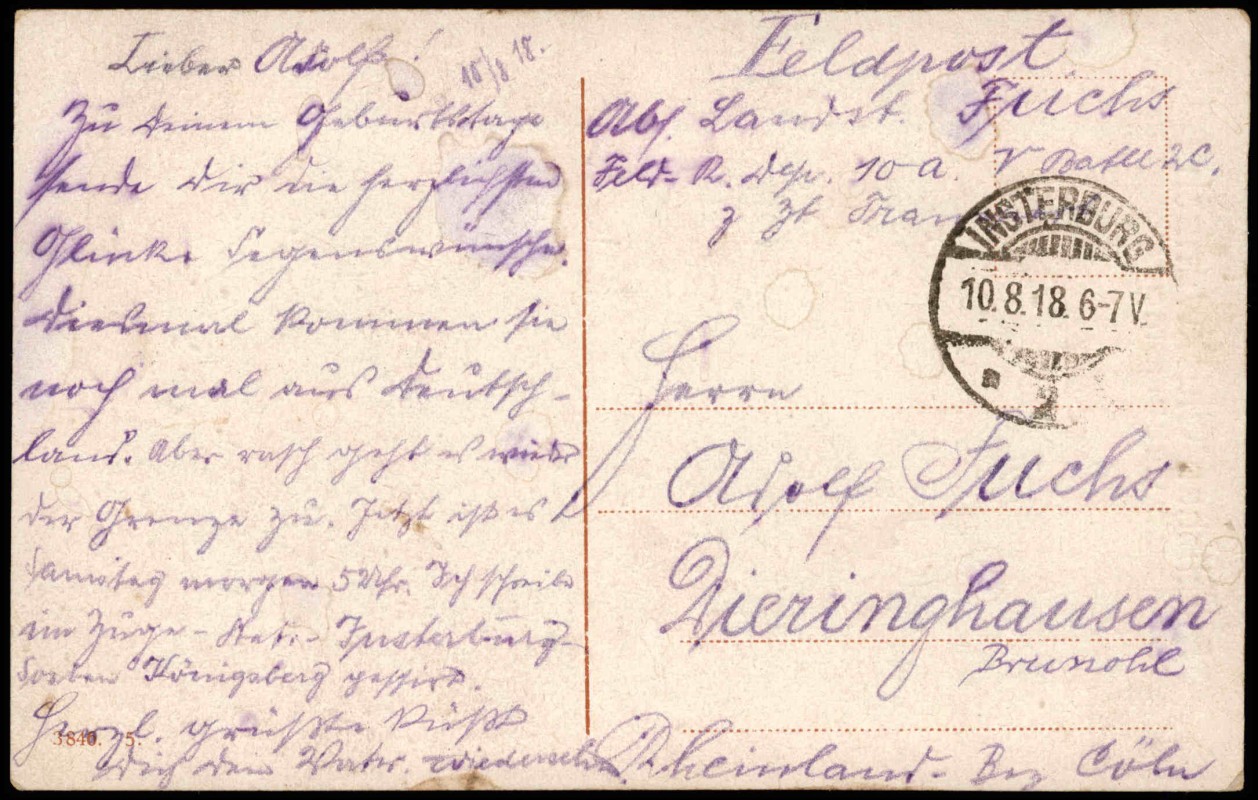 Lieber Adolf!
10/8 18.
Zu Deinem Geburtstage
sende Dir die herzlichsten
Glück- Segenswünsche.
Diesmal kommen sie
noch mal aus Deutsch-
land. Aber rasch geht es wieder
der Grenze zu. Jetzt ist es
Samstag morgen 5 Uhr. Ich schreibe
im Zuge - Insterburg
soeben Königsberg passiert.
Herzl. grüßt küßt
Dich Dein Vater. Wiedersehen.
3840. 5.
Feldpost
Abs. Landst. Fuchs
Feld- R. Dep. 10 a. V
z Zt Tran
INSTERBURG
10.8.18. 6-7 V.
Herrn
Adolf Fuchs
Dieringhausen
Brunohl
Rheinland - Bez Cöln